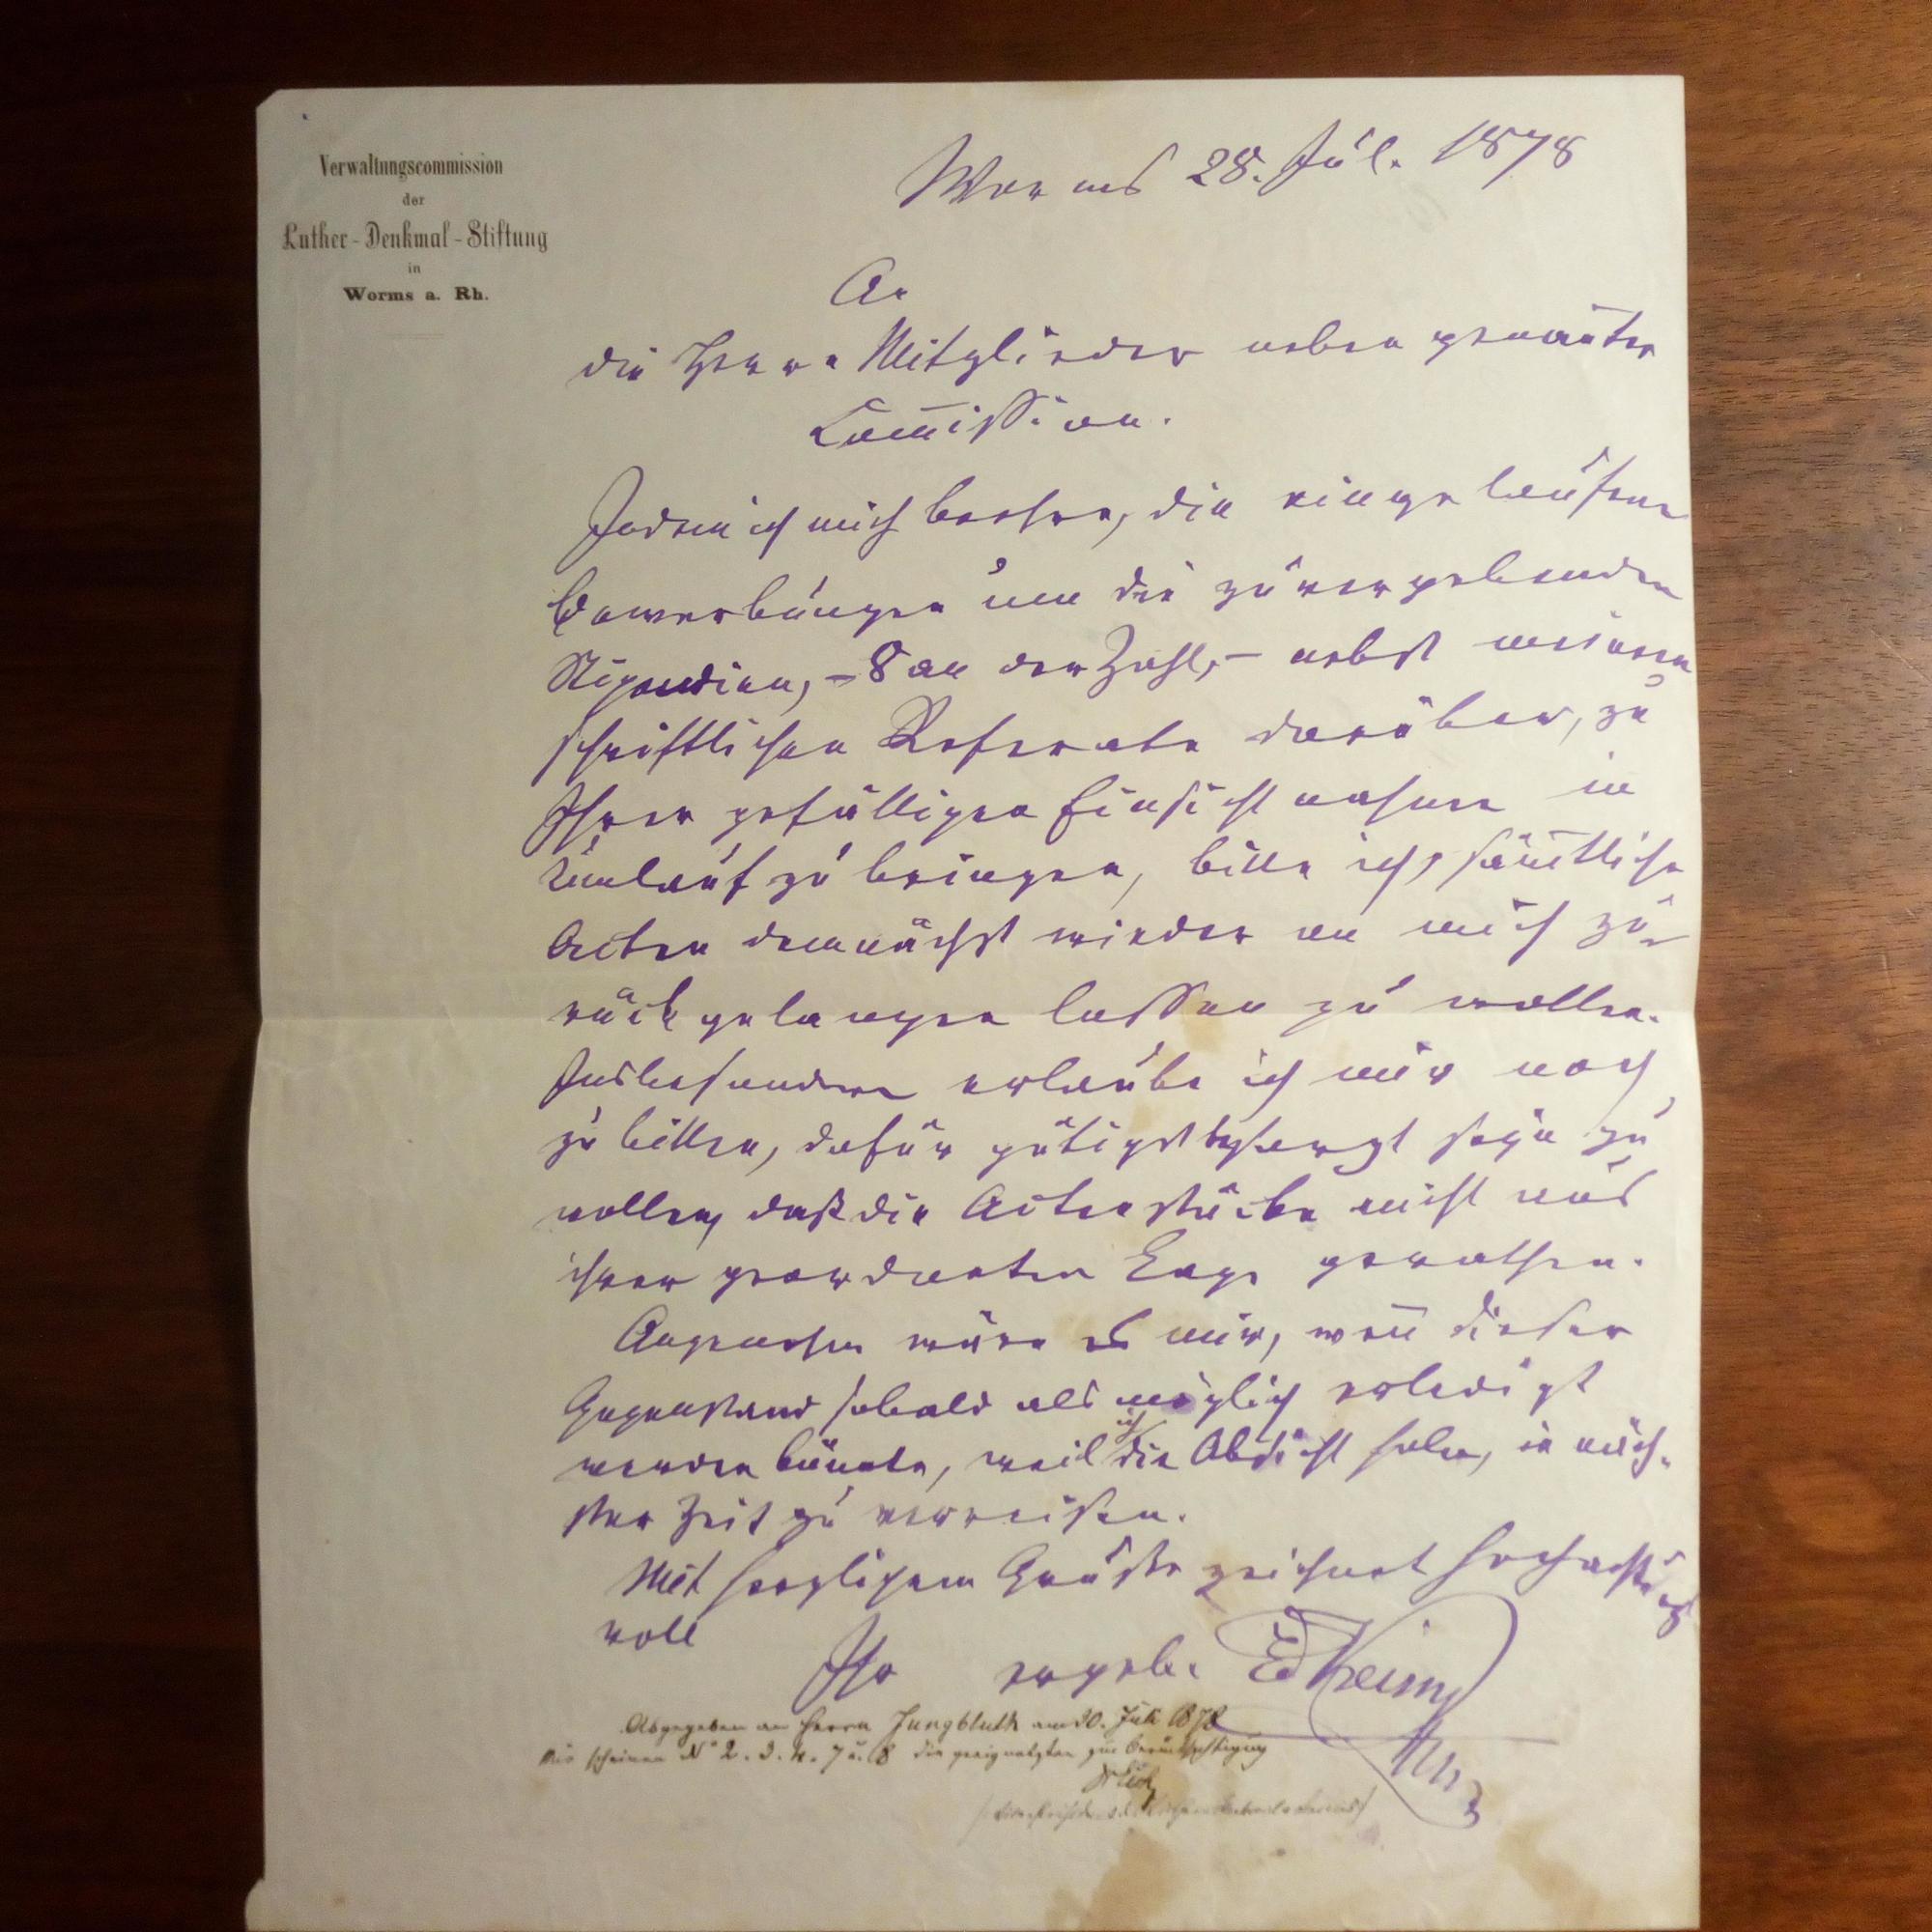 Verwaltungscommission
der
Luther-Denkmal-Stiftung
in
Worms a. Rh.
Worms 28. Jul. 1878
An
die Herrn Mitglieder neben genañter
Com̄ission.
Indem ich mich beehre, die eingelaufene
Bewerbungen um die zu vergebenden
Stipendien, – 8 an der Zahl, – nebst meinem
schriftlichen Referate darüber, zu
Ihrer gefälligen Einsichtnahme in
Umlauf zu bringen, bitte ich, säm̄tliche
Acten demnächst wieder an mich zu-
rück gelangen lassen zu wollen.
Insbesondere erlaube ich mir noch
zu bitten, dafür gütigst besorgt seyn zu
wollen, daß die Actenstücke nicht aus
ihrer geordneten Lage gerathen.
Angenehm wäre es mir, weñ dieser
Gegenstand sobald als möglich erledigt
werden könnte, weil ich die Absicht habe, in näch-
ster Zeit zu verreisen.
Mit herzlichem Gruße zeichnet hochachtungs
voll
Ihr ergeb. Ed Keim
Abgegeben an Herrn Jungbluth am 30. Juli 1878
Mir scheinen No 2. 3. 4. 7 u. 8 die geeignetsten zur Berücksichtigung